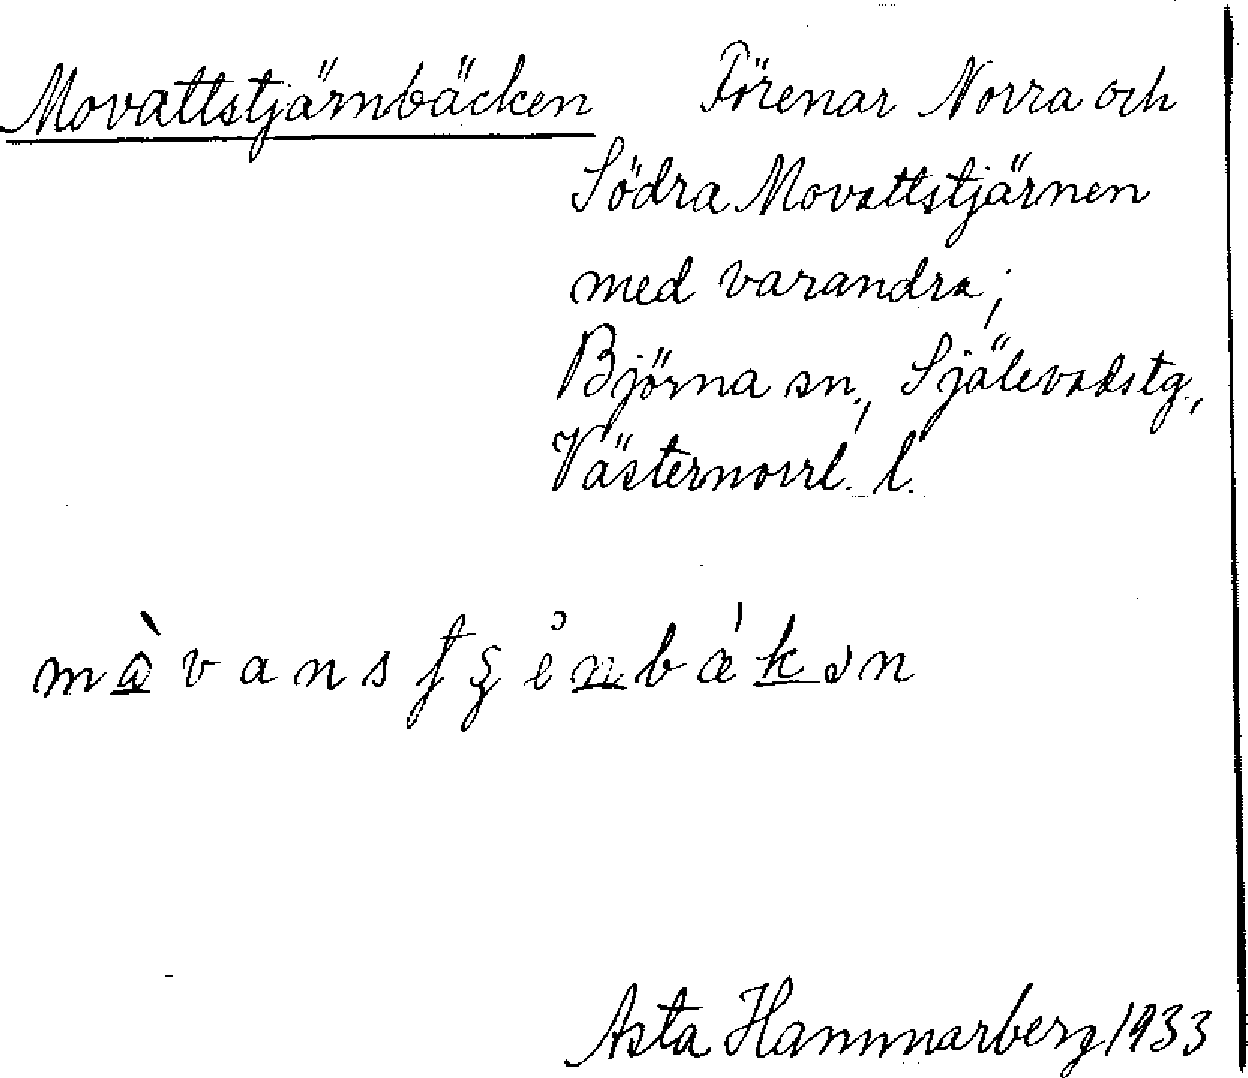 Movattstjärnbäcken Förenar Norra och
Södra Movattstjärnen
med varandra;
Björna sn., Själevads tg.,
Västernorrl. l.
Asta Hammarberg 1933